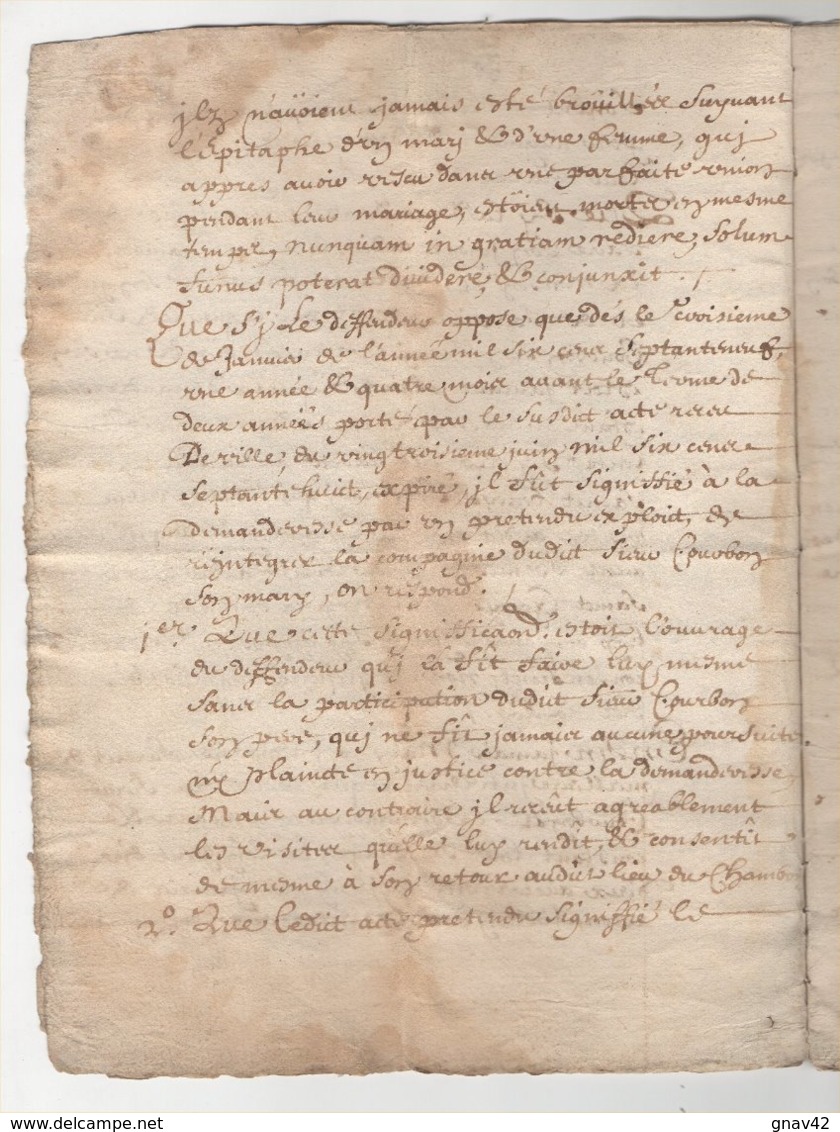 jlz n'aüoient jamais esté broüillés suyuant
l'Epitaphe d'vn marj & d'vne femme, quj
appres auoir vescu dans vne parfaite vnion
pendant leur mariage, estoient morts en mesme
temps, nunquam in gratiam rediere, solum
funus poterat diüidere, & conjunxit.
Que sj Le deffendeur oppose que dés le troisieme
de Januier de l'année mil six cens septanteneuf,
vne année & quatre mois auant le Terme de
deux années porté par le susdict acte receu
Deville, du vingtroisieme juin mil six cens
septantehuict, expiré, jl fût signiffié à la
demanderesse par vn pretendu exploit, de
réjntegrer la compagnie dudict sieur Courbon
son mary, on respond.
1er. Que cette signifficaon. estoit l'ouurage
du deffendeur quj la fît faire luy mesme
sans la participation dudict sieur Courbon
son pere, quj ne fît jamais aucune poursuite
ny plaincte en justice contre la demanderesse,
Mais au contraire jl receût agreablement
les visites qu'elle luy rendît, & consentît
de mesme à son retour audict lieu du Chambon
2o. Que ledict acte pretendu signiffié le
delcampe.net
gnav42